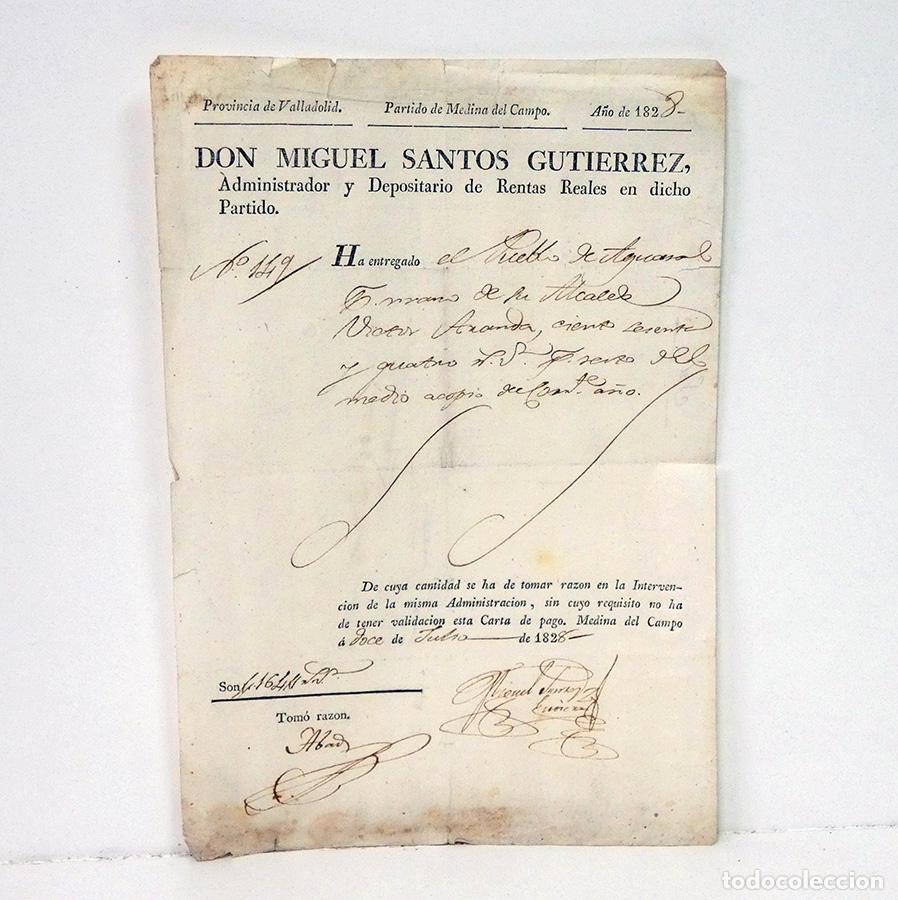 Provincia de Valladolid. Partido de Medina del Campo. Año de 1828-
DON MIGUEL SANTOS GUTIERREZ,
Administrador y Depositario de Rentas Reales en dicho
Partido.
Nº. 149 Ha entregado el Pueblo de Aguasal
P. mano de su Alcalde
Victor Aranda, ciento sesenta
y quatro rs. vn. P. resto del
medio acopio de Corrte. año.
De cuya cantidad se ha de tomar razon en la Interven-
cion de la misma Administracion, sin cuyo requisito no ha
de tener validacion esta Carta de pago. Medina del Campo
á doce de Julio de 1828-
Son 164 rs. vn.
Miguel Santos
Gutierrez
Tomó razon.
Abad
todocoleccion